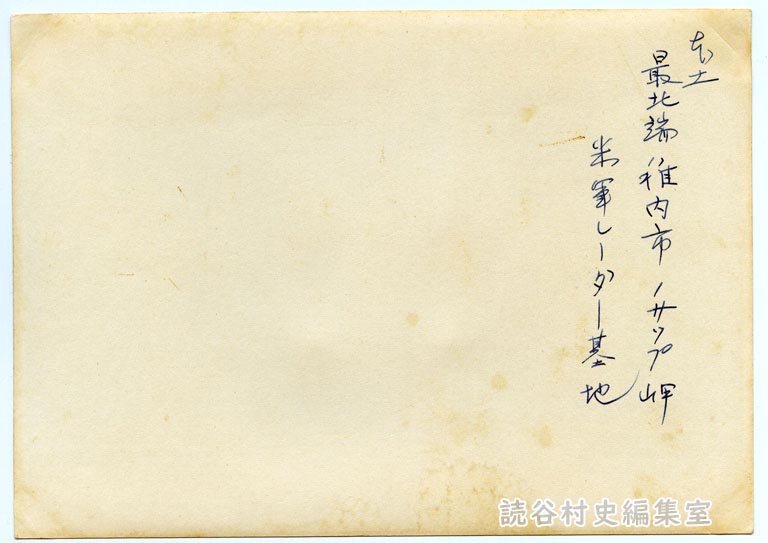 本土
最北端稚内市ノサップ岬
米軍レーダー基地
読谷村史編集室